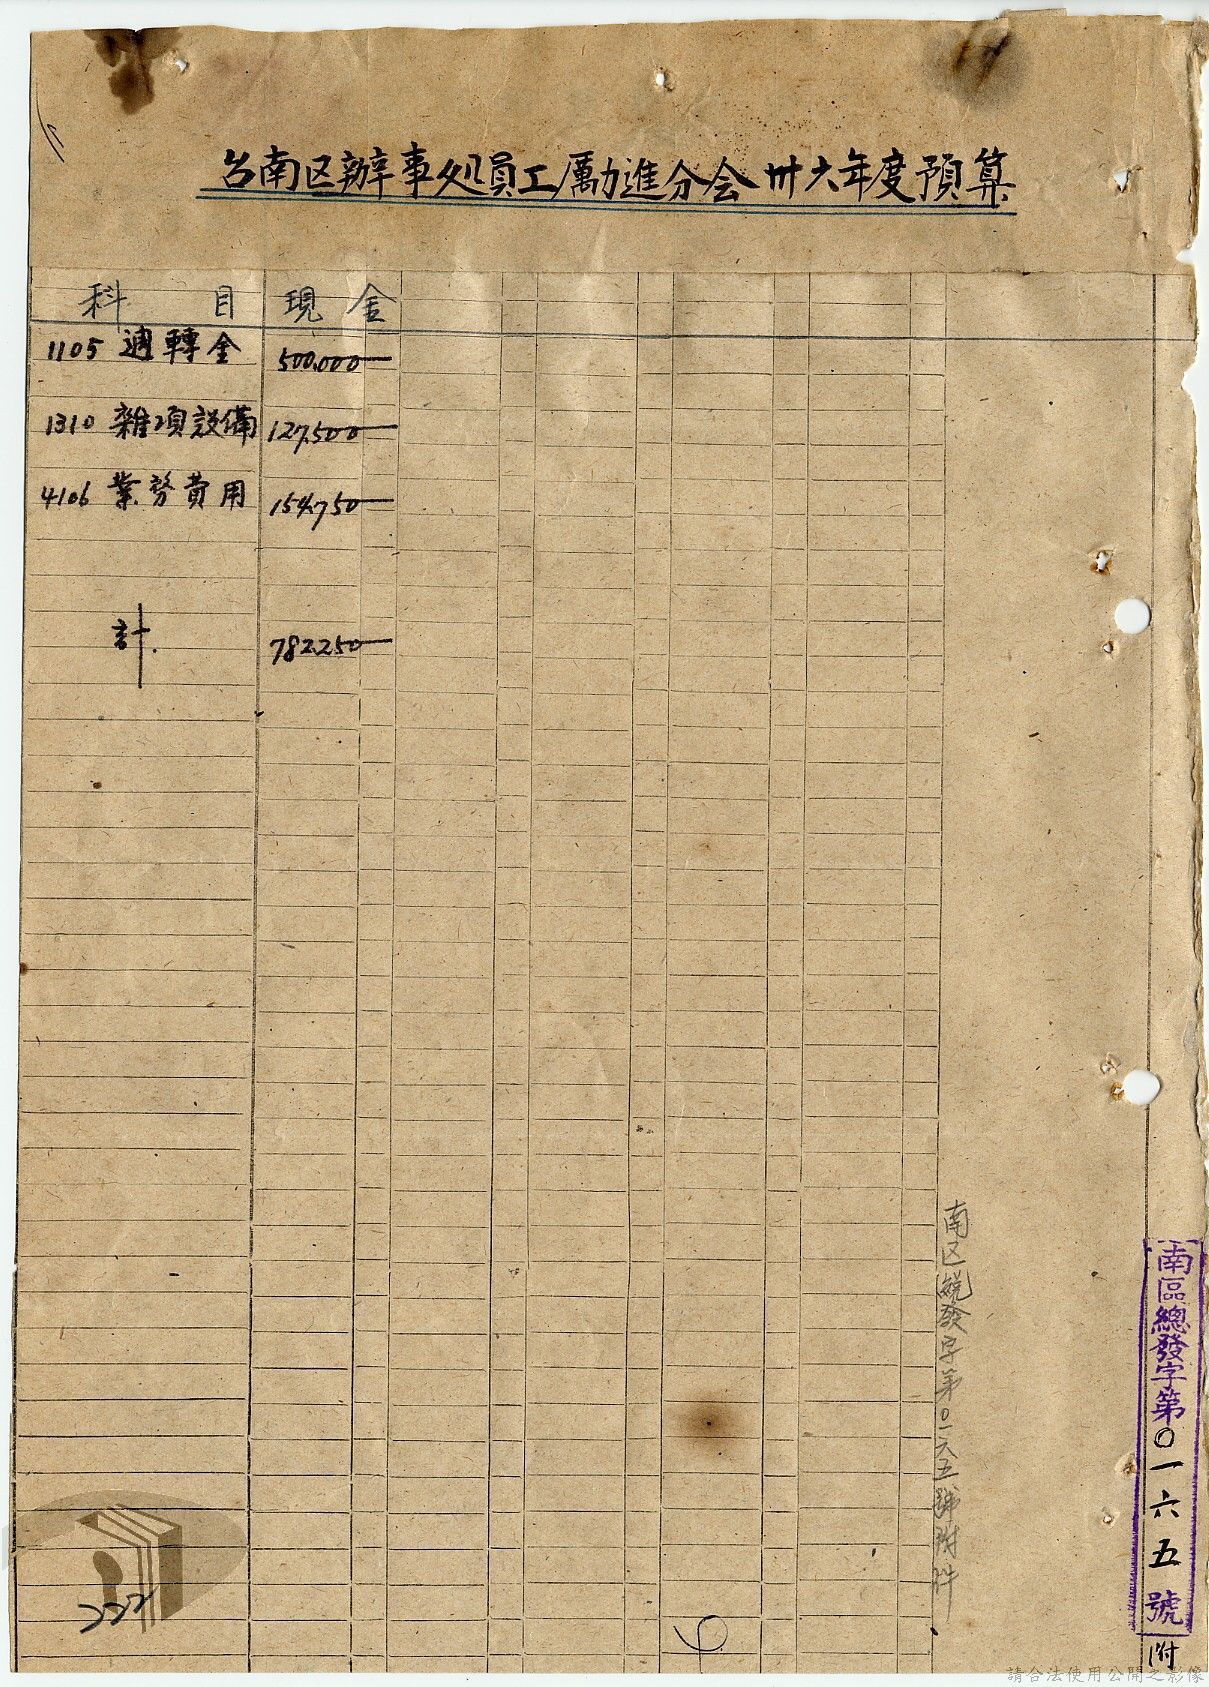 台南区辦事処員工勵進分会卅六年度預算
科目 現金
1105 週轉金 500,000
1310 雜項設備 127,500
4106 業務費用 154,750
計 782,250
南区總發字第〇一六五號附件
南區總發字第〇一六五號
附
222
請合法使用公開之影像